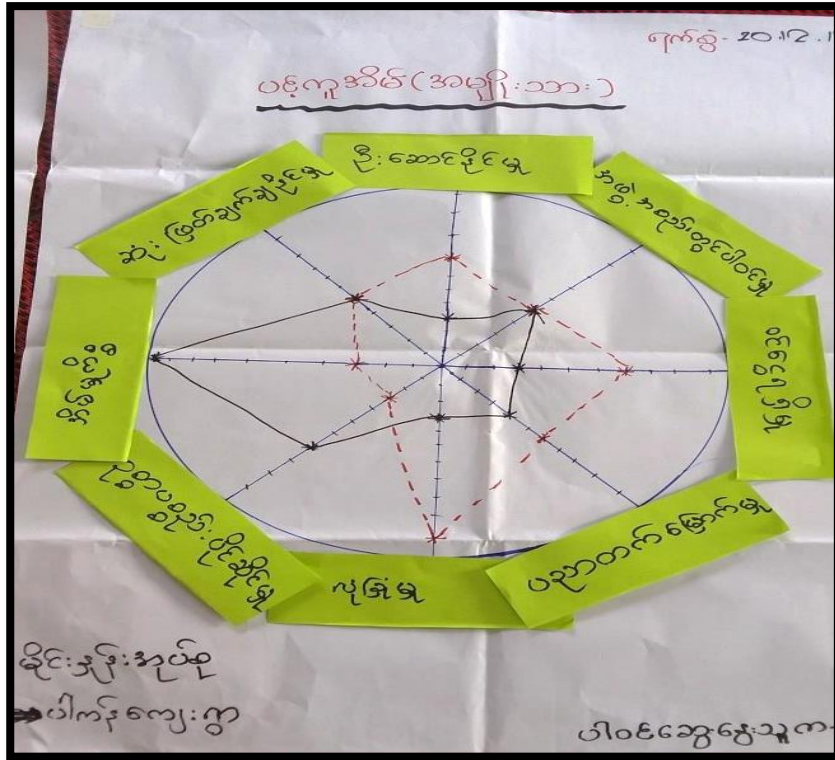 ရက်စွဲ - 20.12.1
ပင့်ကူအိမ် (အမျိုးသား)
ဦးဆောင်နိုင်မှု
အဖွဲ့အစည်းတွင်ပါဝင်မှု
ဝင်ငွေရရှိမှု
ပညာတတ်မြောက်မှု
လုံခြုံမှု
ဥစ္စာပစ္စည်းပိုင်ဆိုင်မှု
ဆုံးဖြတ်ချက်ချနိုင်မှု
မိုင်းနှုန်းအုပ်စု
ပါကန်ကျေးရွာ
ပါဝင်ဆွေးနွေးသူက